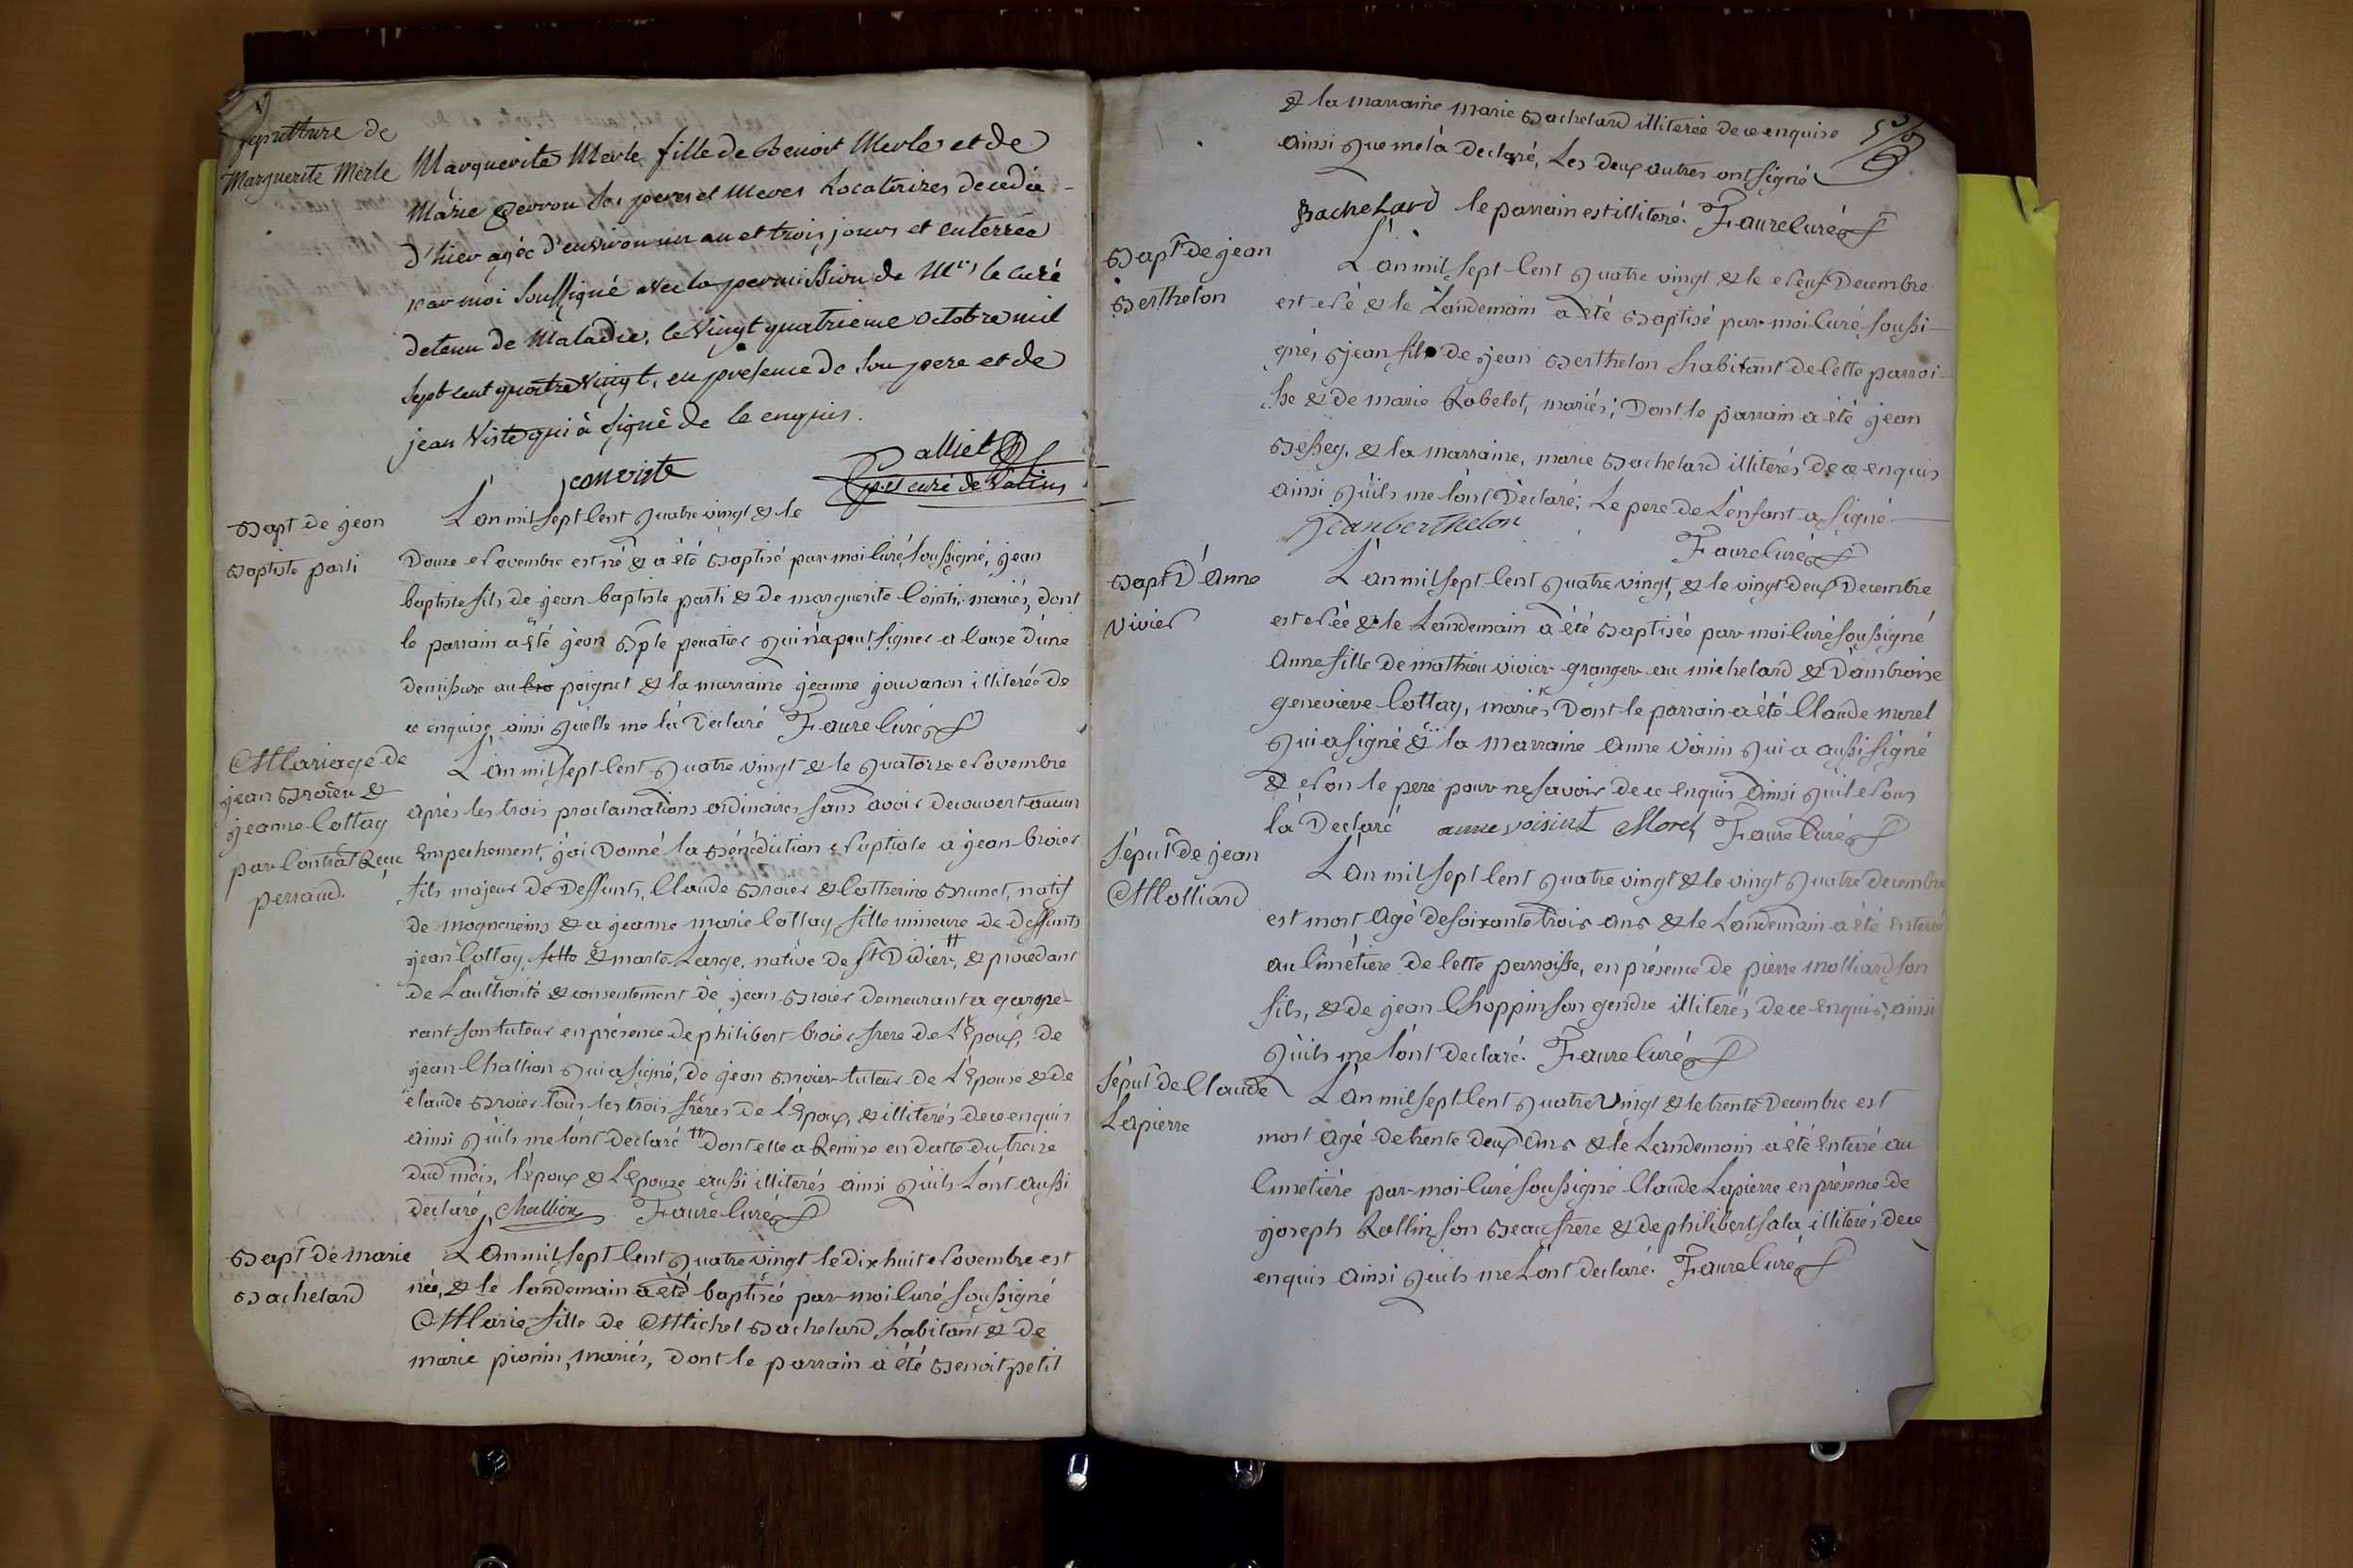 sepulture de
Marguerite Merle
Marguerite Merle fille de Benoit Merle et de
Marie perron ses peres et Meres Locataires decedée
d'hier agée d'environ un an et trois jours et enterrée
par moi soussigné avec la permission de Mr le curé
detenu de Maladie, le vingt quatrieme octobre mil
sept cent quatre vingt, en presence de son pere et de
jean Viste qui à signé de ce enquis.
jean viste
curé de
Bapt de jean
Baptiste parti
L'an mil sept Cent Quatre vingt & le
Douze Novembre est né & a été Baptisé par moi Curé soussigné, jean
baptiste fils de jean baptiste parti & de marguerite Cointi, mariés, dont
le parrain a été jean Bpte penatier Qui n'a peut signer a Cause d'une
demisure au bra poignet & la marraine jeanne jouvanon illiterée de
ce enquise ainsi Qu'elle me l'a Declaré Faure Curé
Mariage de
jean Broïer &
jeanne Cottay
par Contrat Reçu
perraud.
L'an mil sept Cent Quatre vingt & le Quatorze Novembre
après les trois proclamations ordinaires sans avoir decouvert aucun
Empechement, j'ai Donné la Bénédiction Nuptiale a jean broier
fils majeur de Deffunts, Claude Broier & Catherine Brunet, natif
de mogneneins & a jeanne marie Cottay fille mineure de deffunts
jean Cottay, fille & marte Large, native de St Didier, # & procedant
de L'authorité & consentement de jean Broier demeurant a
rant son tuteur en présence de philibert broier frere de L'Epoux, de
jean Challion Qui a signé, de jean Broier tuteur de L'Epouse & de
claude Broier tous les trois frères de L'Epoux, & illiterés de ce enquis
ainsi Qu'ils me l'ont declaré # Dont elle a Remise en datte du treize
dud mois, l'Epoux & L'Epouze aussi illiterés ainsi Qu'ils L'ont aussi
declaré, Challion Faure Curé
Bapt de marie
Bachelard
L'An mil sept Cent Quatre vingt le dix huit Novembre est
née, & le landemain a été baptisée par moi Curé soussigné
Marie fille de Michel Bachelard habitant & de
marie pionin, mariés, dont le parrain a été Benoit petit
& la marraine marie Bachelard illiterée de ce enquise
ainsi Que me l'a Declaré, Les deux autres ont signé
Bachelard le parrain est illiteré. Faure Curé
Bapt de jean
Berthelon
L'an mil sept Cent Quatre vingt & le Neuf Decembre
est Né & le Landemain a été Baptisé par moi Curé soussi-
gné, jean fils de jean Berthelon habitant de Cette parroi-
sse & de marie Robelet, mariés; Dont le parrain a été jean
Bessey, & la marraine, marie Bachelard illiterés de ce enquis
ainsi Qu'ils me l'ont Déclaré; Le pere de L'enfant a signé
Jean berthelon
Faure Curé
Bapt D'Anne
vivier
L'an mil sept Cent Quatre vingt, & le vingt deux Decembre
est Née & le Landemain a été Baptisée par moi Curé soussigné
Anne fille de mathieu vivier granger au michelard & D'ambroise
genevieve Cottay, mariés Dont le parrain a été Claude morel
Qui a signé & la marraine Anne Voisin Qui a aussi signé
& Non le pere pour ne savoir de ce enquis Ainsi Qu'il Nous
l'a Declaré anne voisint Morel Faure Curé
Sepult de jean
Molliard
L'An mil sept Cent Quatre vingt & le vingt Quatre decembre
est mort Agé de soixante trois ans & le Landemain a été Enterré
au Cimétiere de Cette parroisse, en présence de pierre molliard son
fils, & de jean Choppin son gendre illiterés de ce enquis, ainsi
Qu'ils me l'ont declaré. Faure Curé
Sépult de Claude
Lapierre
L'An mil sept Cent Quatre Vingt & le trente Decembre est
mort agé de trente deux Ans & le Landemain a été Enterré au
Cimetiére par moi Curé soussigné Claude Lapierre en présence de
joseph Rollin son Beau frère & de philibert sala illiterés de ce
enquis Ainsi Qu'ils me L'ont declaré. Faure Curé